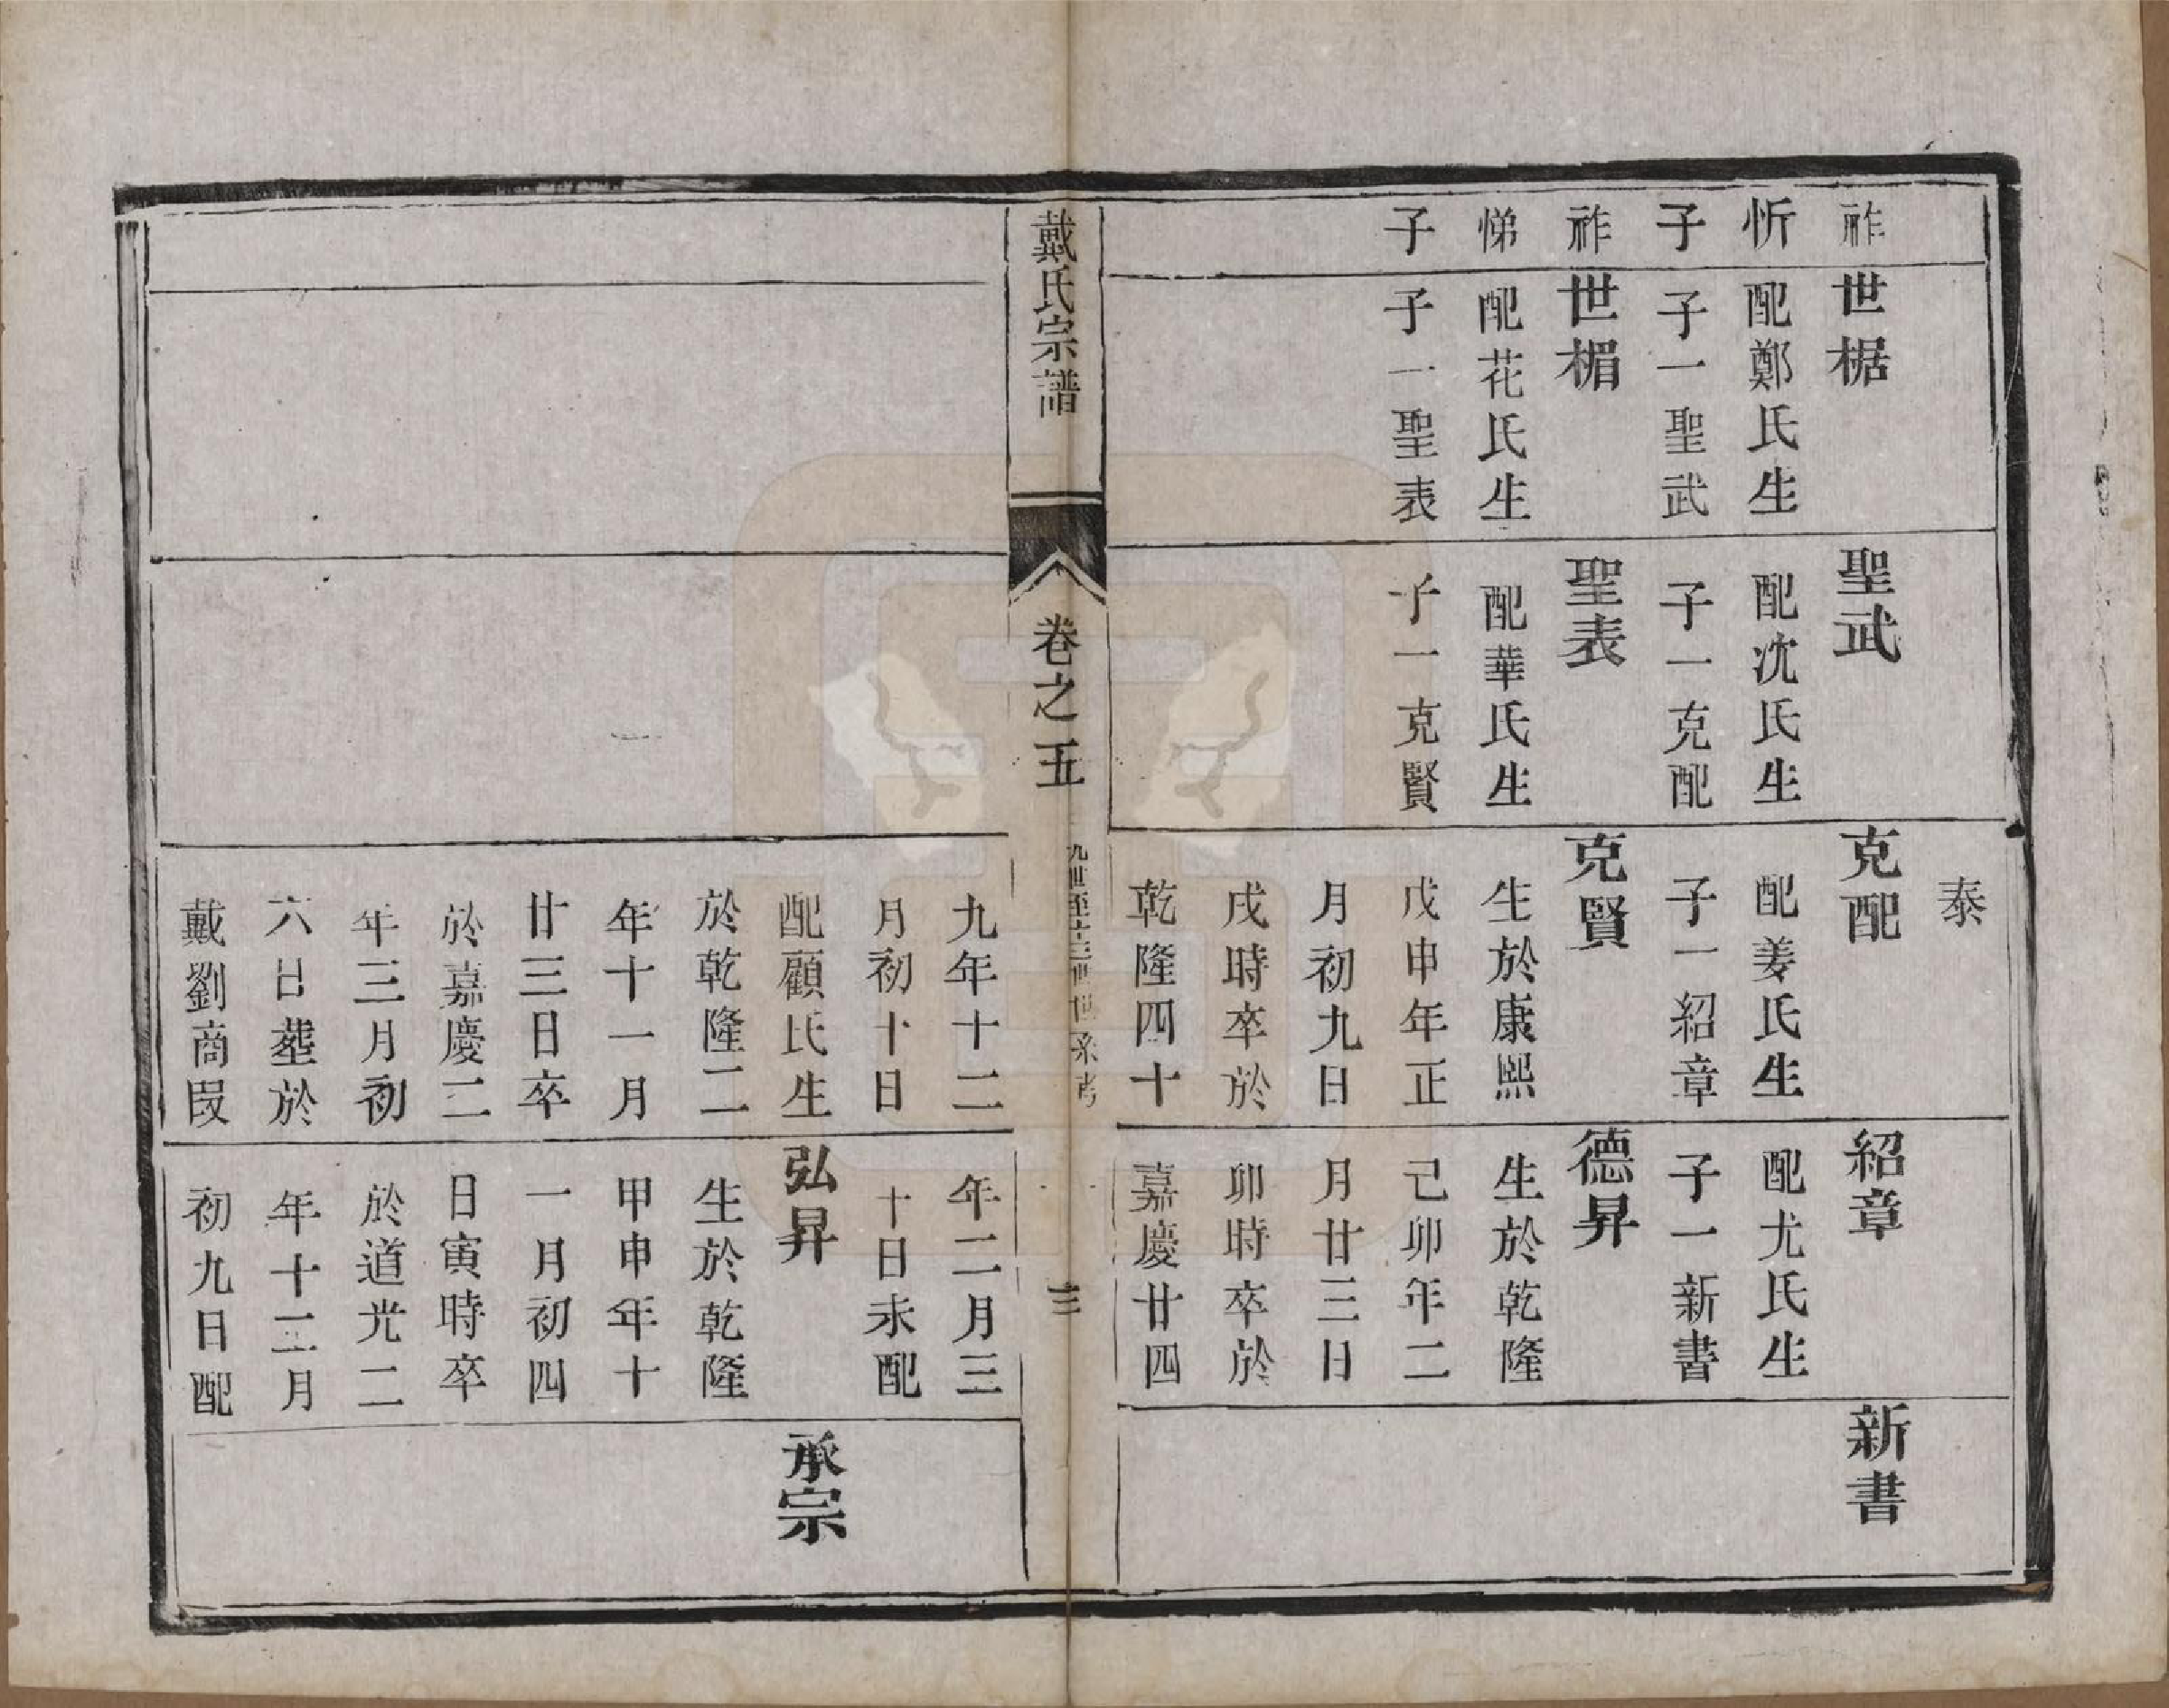 祚
忻
子
祚
悌
子
世椐
配鄭氏生
子一聖武
世楣
配花氏生
子一聖表
聖武
配沈氏生
子一克配
聖表
配華氏生
子一克賢
泰
克配
配姜氏生
子一紹章
克賢
生於康熙
戊申年正
月初九日
戌時卒於
乾隆四十
紹章
配尤氏生
子一新書
德昇
生於乾隆
己卯年二
月廿三日
卯時卒於
嘉慶廿四
新書
戴氏宗譜
卷之五
九世至十三世世系考
三
九年十二
月初十日
配顧氏生
於乾隆二
年十一月
廿三日卒
於嘉慶二
年三月初
六日葬於
戴劉商叚
年二月三
十日未配
弘昇
生於乾隆
甲申年十
一月初四
日寅時卒
於道光二
年十二月
初九日配
承宗